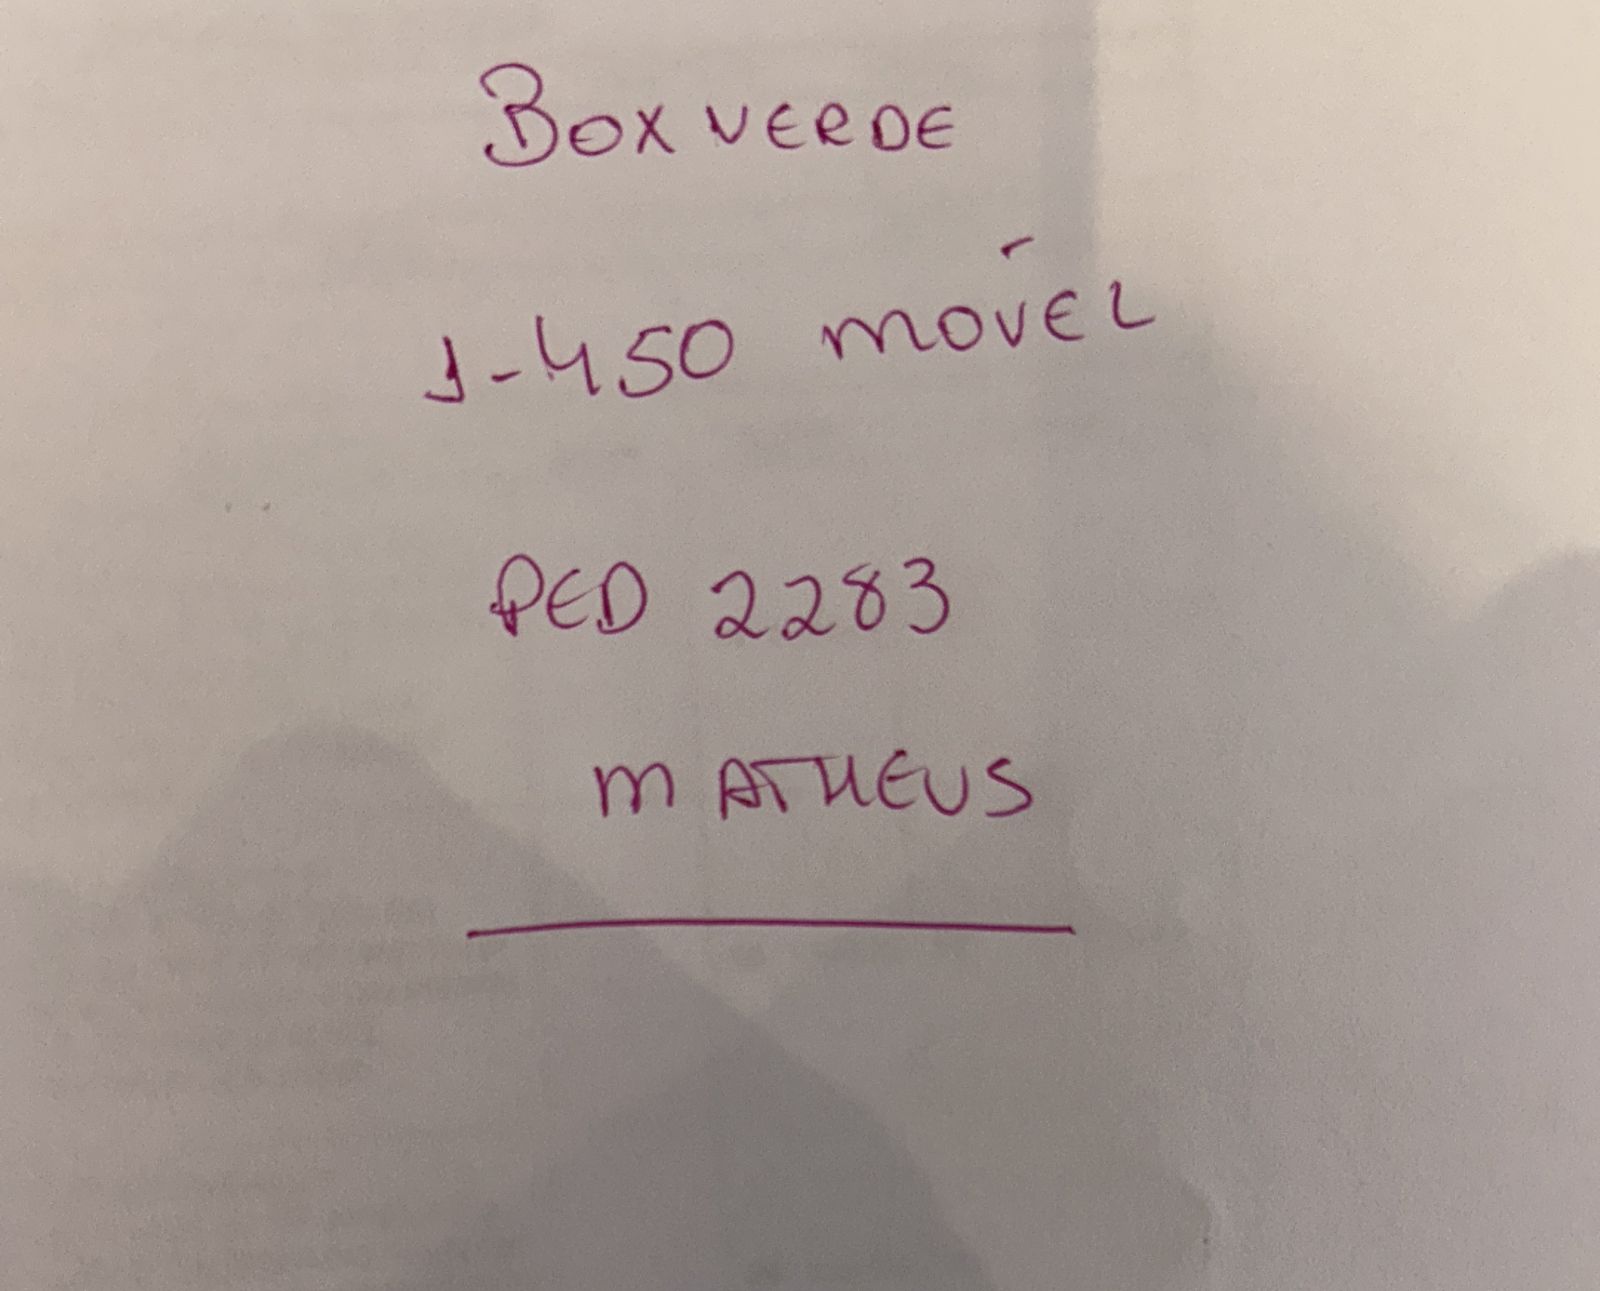 BOX VERDE
1-450 MOVÉL
PED 2283
MATHEUS